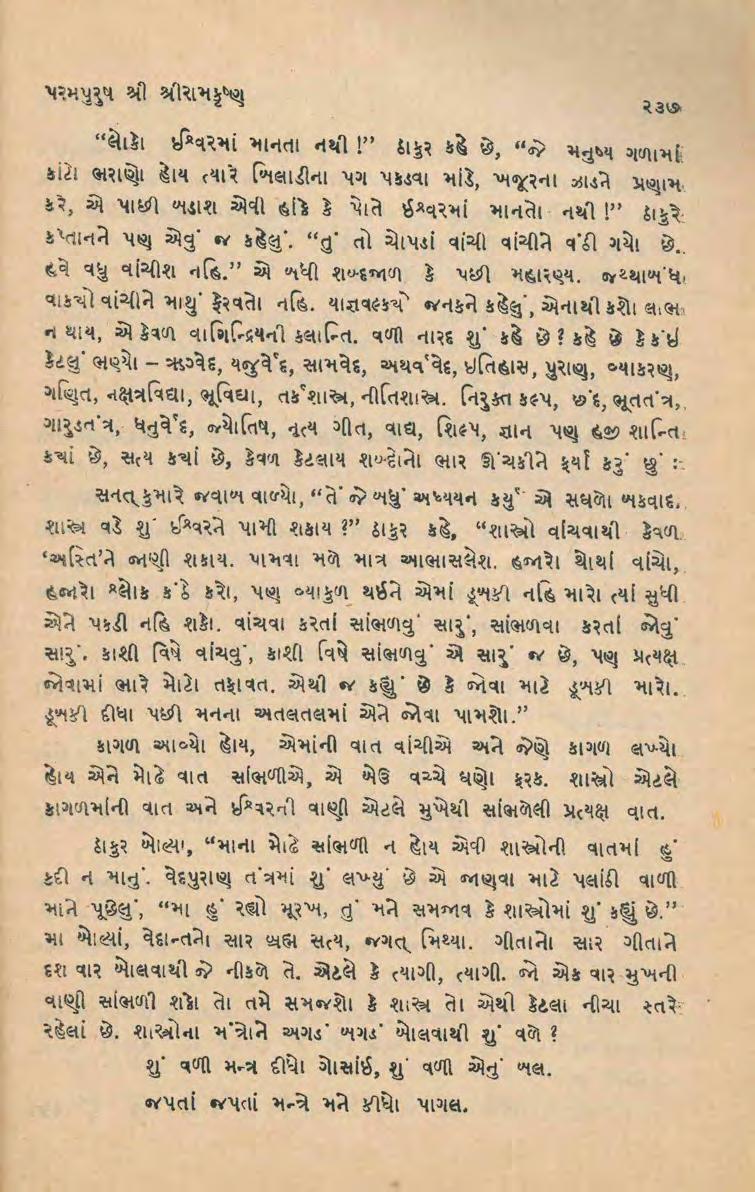 પરમપુરુષ શ્રી શ્રીરામકૃષ્ણ
૨૩૭
“લોકો ઈશ્વરમાં માનતા નથી !” ઠાકુર કહે છે, “જે મનુષ્ય ગળામાં
કાંટો ભરાણો હોય ત્યારે બિલાડીના પગ પકડવા માંડે, ખજૂરના ઝાડને પ્રણામ
કરે, એ પાછી બડાશ એવી હાંકે કે પોતે ઈશ્વરમાં માનતો નથી !” ઠાકુરે
કપ્તાનને પણ એવું જ કહેલું. “તું તો ચોપડાં વાંચી વાંચીને વંઠી ગયો છે.
હવે વધુ વાંચીશ નહિ.” એ બધી શબ્દજાળ કે પછી મહારણ્ય. જથ્થાબંધ
વાકયો વાંચીને માથું ફેરવતો નહિ. યાજ્ઞવલ્કયે જનકને કહેલું, એનાથી કશો લાભ
ન થાય, એ કેવળ વાગિન્દ્રિયની કલાન્તિ. વળી નારદ શું કહે છે ? કહે છે કે કંઈ
કેટલું ભણ્યો – ઋગ્વેદ, યજુર્વેદ, સામવેદ, અથર્વવેદ, ઇતિહાસ, પુરાણ, વ્યાકરણ,
ગણિત, નક્ષત્રવિદ્યા, ભૂવિદ્યા, તર્કશાસ્ત્ર, નીતિશાસ્ત્ર. નિરુક્ત કલ્પ, છંદ, ભૂતતંત્ર,
ગારુડતંત્ર, ધનુર્વેદ, જ્યોતિષ, નૃત્ય ગીત, વાદ્ય, શિલ્પ, જ્ઞાન પણ હજી શાન્તિ
કયાં છે, સત્ય કયાં છે, કેવળ કેટલાય શબ્દોનો ભાર ઊંચકીને ફર્યા કરું છું :
સનત્ કુમારે જવાબ વાળ્યો, “તેં જે બધું અધ્યયન કર્યું એ સઘળો બકવાદ.
શાસ્ત્ર વડે શું ઈશ્વરને પામી શકાય ?” ઠાકુર કહે, “શાસ્ત્રો વાંચવાથી કેવળ
‘અસ્તિ’ને જાણી શકાય. પામવા મળે માત્ર આભાસલેશ. હજારો થોથાં વાંચો,
હજારો શ્લોક કંઠે કરો, પણ વ્યાકુળ થઈને એમાં ડૂબકી નહિ મારો ત્યાં સુધી
એને પકડી નહિ શકો. વાંચવા કરતાં સાંભળવું સારું, સાંભળવા કરતાં જોવું
સારું. કાશી વિષે વાંચવું, કાશી વિષે સાંભળવું એ સારું જ છે, પણ પ્રત્યક્ષ
જોવામાં ભારે મોટો તફાવત. એથી જ કહ્યું છે કે જોવા માટે ડૂબકી મારો.
ડૂબકી દીધા પછી મનના અતલતલમાં એને જોવા પામશો.”
કાગળ આવ્યો હોય, એમાંની વાત વાંચીએ અને જેણે કાગળ લખ્યો
હોય એને મોઢે વાત સાંભળીએ, એ બેઉ વચ્ચે ઘણો ફરક. શાસ્ત્રો એટલે
કાગળમાંની વાત અને ઈશ્વરની વાણી એટલે મુખેથી સાંભળેલી પ્રત્યક્ષ વાત.
ઠાકુર બોલ્યા, “માના મોઢે સાંભળી ન હોય એવી શાસ્ત્રોની વાતમાં હું
કદી ન માનું. વેદપુરાણ તંત્રમાં શું લખ્યું છે એ જાણવા માટે પલાંઠી વાળી
માને પૂછેલું, “મા હું રહ્યો મૂરખ, તું મને સમજાવ કે શાસ્ત્રોમાં શું કહ્યું છે.”
મા બોલ્યાં, વેદાન્તનો સાર બ્રહ્મ સત્ય, જગત્ મિથ્યા. ગીતાનો સાર ગીતાને
દશ વાર બોલવાથી જે નીકળે તે. એટલે કે ત્યાગી, ત્યાગી. જો એક વાર મુખની
વાણી સાંભળી શકો તો તમે સમજશો કે શાસ્ત્ર તો એથી કેટલા નીચા સ્તરે
રહેલાં છે. શાસ્ત્રોના મંત્રોને અગડં બગડં બોલવાથી શું વળે ?
શું વળી મન્ત્ર દીધો ગોસાંઈ, શું વળી એનું બલ.
જપતાં જપતાં મન્ત્રે મને કીધો પાગલ.